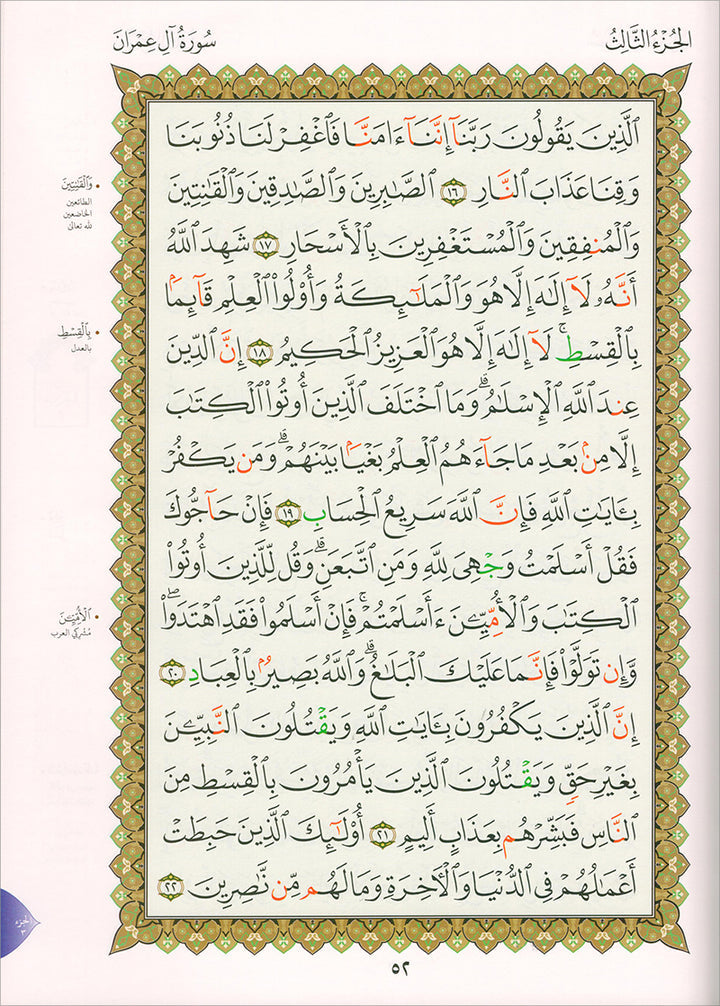 الجُزْءُ الثَّالِثُ
سُورَةُ آلِ عِمْرَانَ
الَّذِينَ يَقُولُونَ رَبَّنَآ إِنَّنَآ ءَامَنَّا فَٱغْفِرْ لَنَا ذُنُوبَنَا
وَقِنَا عَذَابَ ٱلنَّارِ ١٦ ٱلصَّٰبِرِينَ وَٱلصَّٰدِقِينَ وَٱلْقَٰنِتِينَ
وَٱلْمُنفِقِينَ وَٱلْمُسْتَغْفِرِينَ بِٱلْأَسْحَارِ ١٧ شَهِدَ ٱللَّهُ
أَنَّهُۥ لَآ إِلَٰهَ إِلَّا هُوَ وَٱلْمَلَٰٓئِكَةُ وَأُو۟لُوا۟ ٱلْعِلْمِ قَآئِمًۢا
بِٱلْقِسْطِ ۚ لَآ إِلَٰهَ إِلَّا هُوَ ٱلْعَزِيزُ ٱلْحَكِيمُ ١٨ إِنَّ ٱلدِّينَ
عِندَ ٱللَّهِ ٱلْإِسْلَٰمُ ۗ وَمَا ٱخْتَلَفَ ٱلَّذِينَ أُوتُوا۟ ٱلْكِتَٰبَ
إِلَّا مِنۢ بَعْدِ مَا جَآءَهُمُ ٱلْعِلْمُ بَغْيًۢا بَيْنَهُمْ ۗ وَمَن يَكْفُرْ
بِـَٔايَٰتِ ٱللَّهِ فَإِنَّ ٱللَّهَ سَرِيعُ ٱلْحِسَابِ ١٩ فَإِنْ حَآجُّوكَ
فَقُلْ أَسْلَمْتُ وَجْهِىَ لِلَّهِ وَمَنِ ٱتَّبَعَنِ ۗ وَقُل لِّلَّذِينَ أُوتُوا۟
ٱلْكِتَٰبَ وَٱلْأُمِّيِّـۧنَ ءَأَسْلَمْتُمْ ۚ فَإِنْ أَسْلَمُوا۟ فَقَدِ ٱهْتَدَوا۟ ۖ
وَّإِن تَوَلَّوْا۟ فَإِنَّمَا عَلَيْكَ ٱلْبَلَٰغُ ۗ وَٱللَّهُ بَصِيرٌۢ بِٱلْعِبَادِ ٢٠
إِنَّ ٱلَّذِينَ يَكْفُرُونَ بِـَٔايَٰتِ ٱللَّهِ وَيَقْتُلُونَ ٱلنَّبِيِّـۧنَ
بِغَيْرِ حَقٍّ وَيَقْتُلُونَ ٱلَّذِينَ يَأْمُرُونَ بِٱلْقِسْطِ مِنَ
ٱلنَّاسِ فَبَشِّرْهُم بِعَذَابٍ أَلِيمٍ ٢١ أُو۟لَٰٓئِكَ ٱلَّذِينَ حَبِطَتْ
أَعْمَٰلُهُمْ فِى ٱلدُّنْيَا وَٱلْأٓخِرَةِ وَمَا لَهُم مِّن نَّٰصِرِينَ ٢٢
وَٱلْقَٰنِتِينَ
الطائعين
الخاضعين
لله تعالى
بِٱلْقِسْطِ
بالعدل
ٱلْأُمِّيِّـۧنَ
مُشركي العرب
الجزء
٣
٥٢